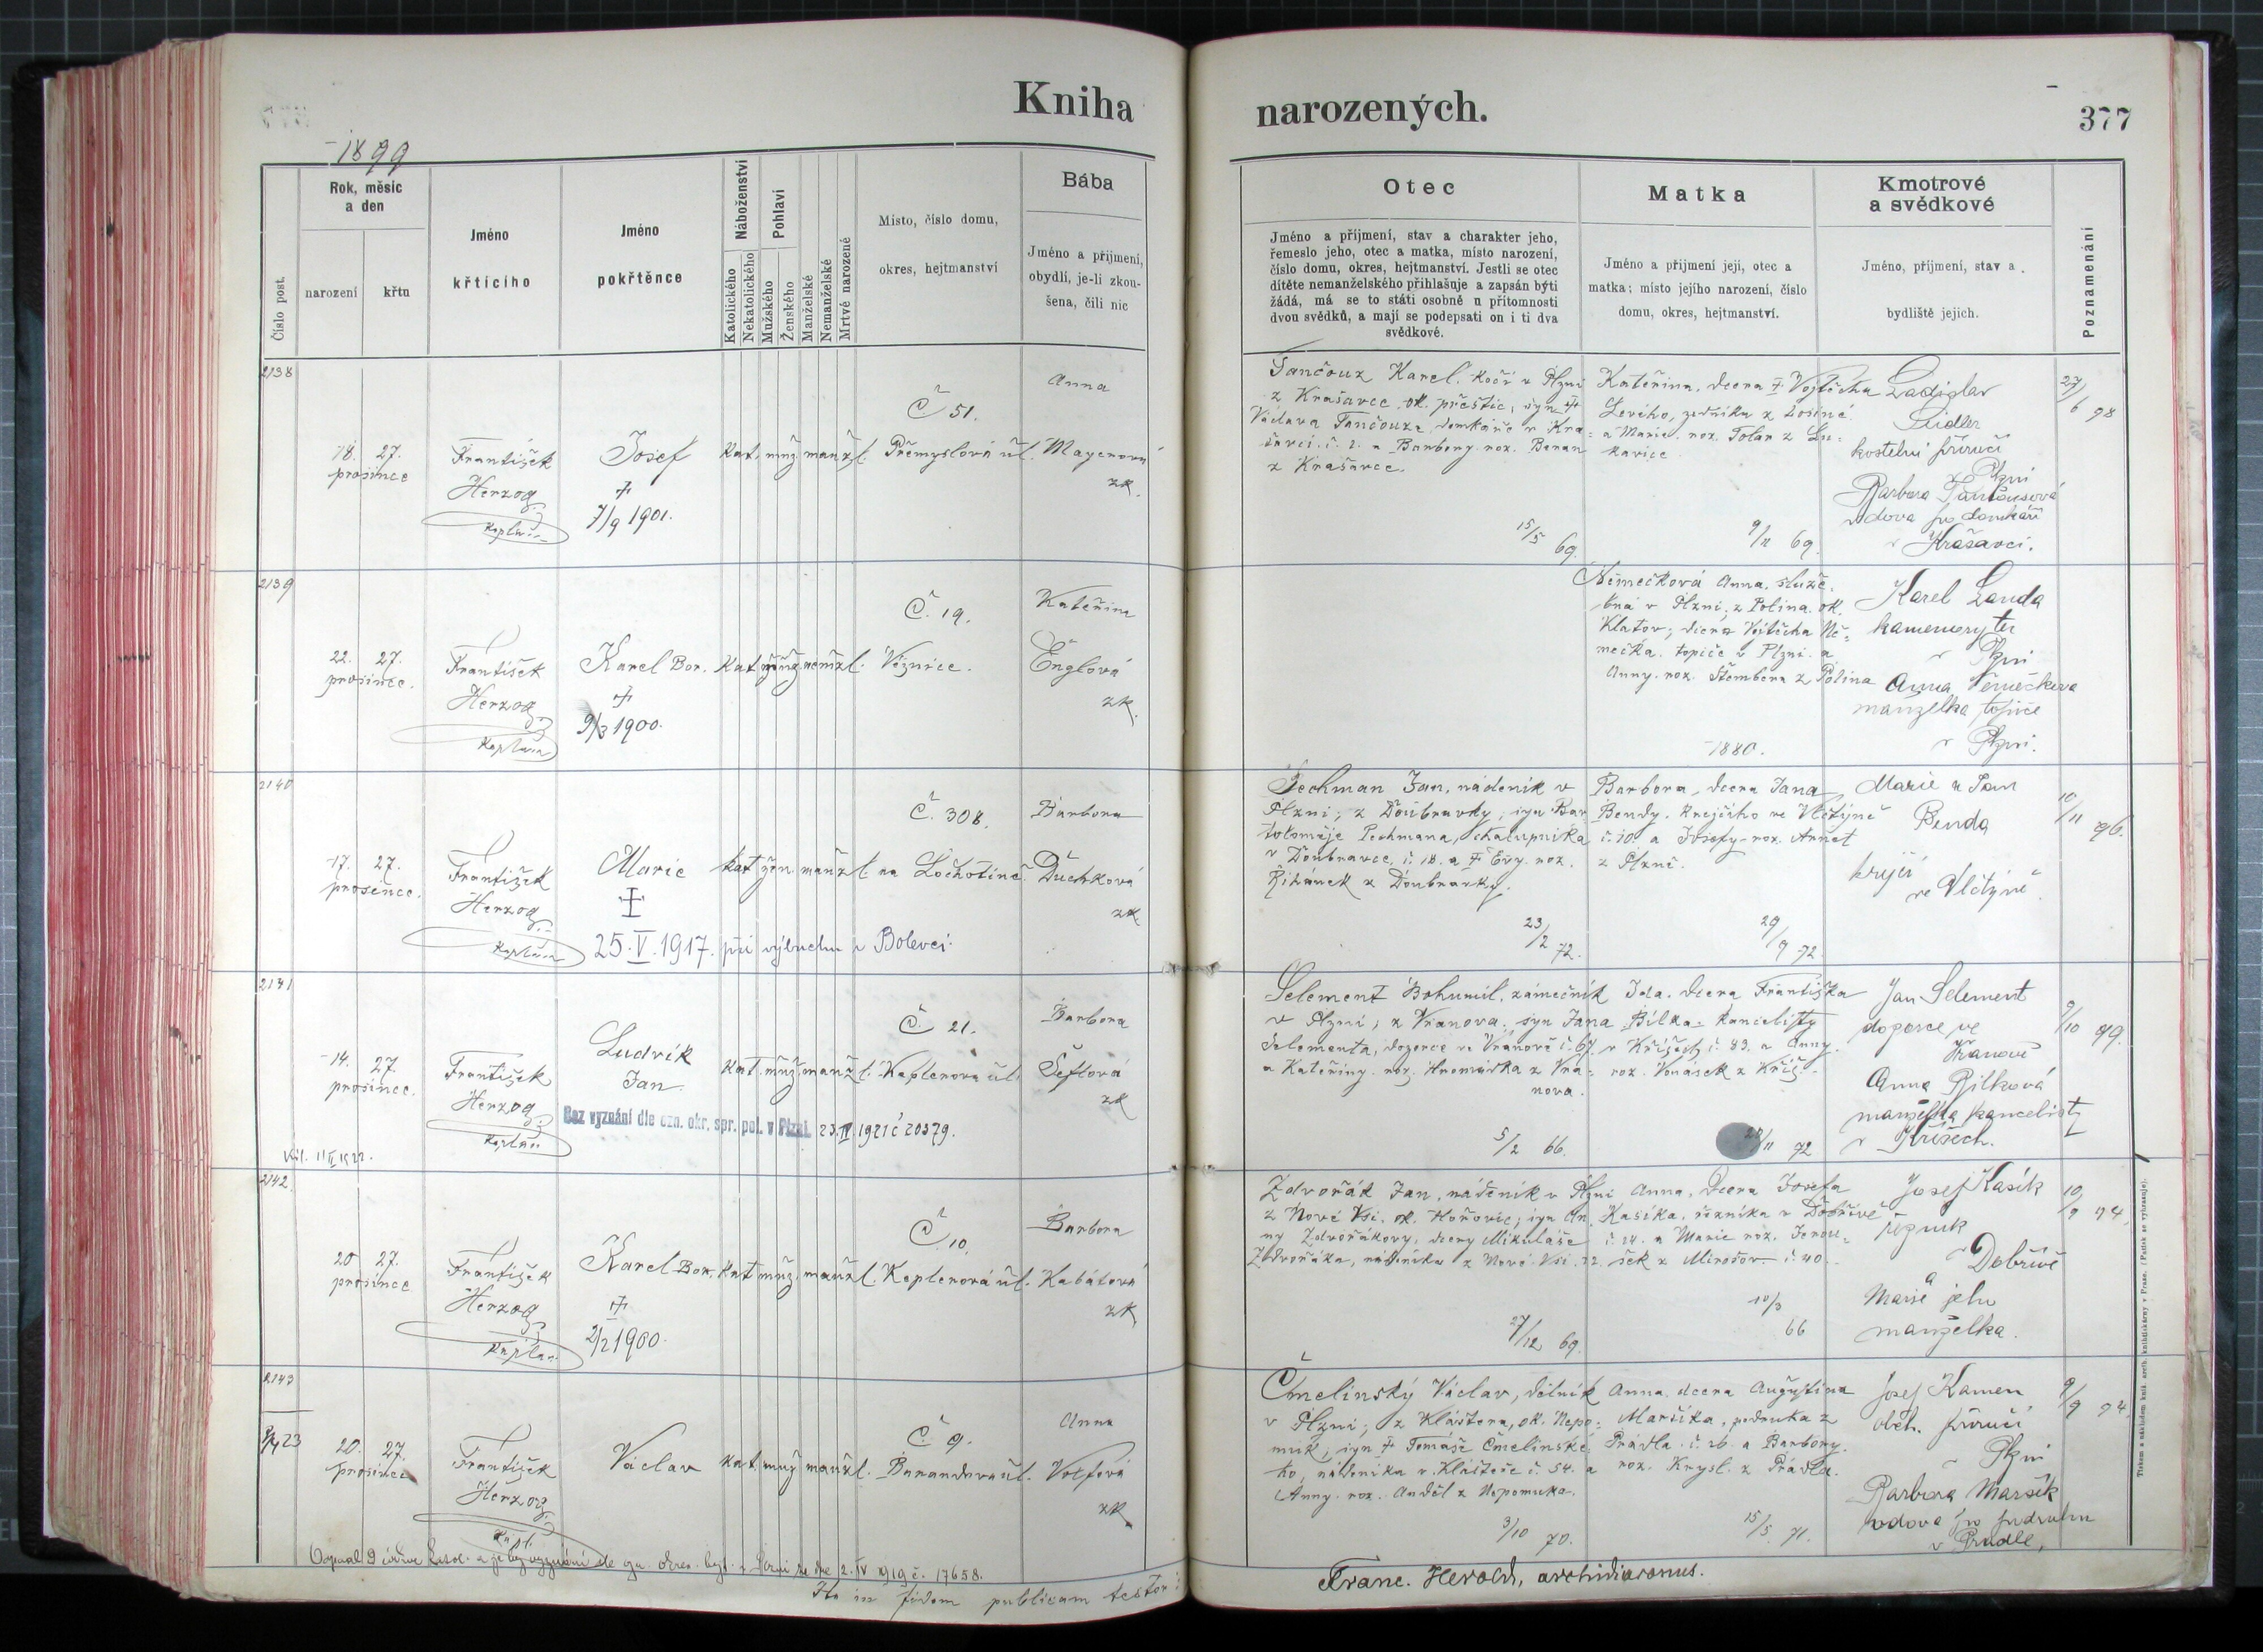 Kniha narozených.
377
1899
Číslo post.
Rok, měsíc
a den
narození
křtu
Jméno
křtícího
Jméno
pokřtěnce
Náboženství
Katolického
Nekatolického
Pohlaví
Mužského
Ženského
Manželské
Nemanželské
Mrtvě narozené
Místo, číslo domu,
okres, hejtmanství
Bába
Jméno a příjmení,
obydlí, je-li zkou-
šena, čili nic
Otec
Jméno a příjmení, stav a charakter jeho,
řemeslo jeho, otec a matka, místo narození,
číslo domu, okres, hejtmanství. Jestli se otec
dítěte nemanželského přihlašuje a zapsán býti
žádá, má se to státi osobně u přítomnosti
dvou svědků, a mají se podepsati on i ti dva
svědkové.
Matka
Jméno a přijmení její, otec a
matka; místo jejího narození, číslo
domu, okres, hejtmanství.
Kmotrové
a svědkové
Jméno, příjmení, stav a
bydliště jejich.
Poznamenání
2138
18. 27.
prosince
František
Herzog
kaplan
Josef
†
7/9 1901.
kat. muž. manžl.
Č 51.
Přemyslová úl.
Anna
Mayerová
zk.
Tančouz Karel, kočí v Plzni
z Krašovce, ok. přeštic, syn †
Václava Tančouze, domkáře v Kra-
šovci č. 2. a Barbory roz. Beran
z Krašovce.
15/5 69.
Kateřina, dcera † Vojtěcha
Levého, zedníka z Losiné
a Marie, roz. Tolar z Lu-
kavice
9/11 69.
Ladislav
Šidler
kostelní příručí
z Plzni
Barbora Tančousová
vdova po domkáři
v Krašovci.
27/6 98
2139
22. 27.
prosince.
František
Herzog
kaplan
Karel Bor.
†
9/3 1900.
kat. muž. nemžl.
Č. 19.
Věznice.
Kateřina
Englová
zk.
Němečková Anna, služe-
bná v Plzni, z Polína, ok.
Klatov; dcera Vojtěcha Ně-
mečka, topiče v Plzni a
Anny roz. Štembera z Polína
1880.
Karel Landa
kamenorytec
v Plzni
Anna Němečkova
manželka topiče
v Plzni.
2140
17. 27.
prosince.
František
Herzog
kaplan
Marie
†
25. V. 1917. při výbuchu v Bolevci
kat. žen. manžl.
Č. 308.
na Lochotíně.
Barbora
Duchková
zk.
Pechman Jan, nádeník v
Plzni; z Doubravky, syn Bar-
toloměje Pechmana, chalupníka
v Doubravce, č. 18. a † Evy roz.
Řihánek z Doubravky.
23/2 72.
Barbora, dcera Jana
Bendy, krejčího ve Vlčtýně
č. 10. a Josefy roz. Arnet
z Plzně.
29/9 72.
Marie a Jan
Benda
krejčí
ve Vlčtýně.
10/11 96.
2141
14. 27.
prosince.
František
Herzog
kaplan
Ludvík
Jan
kat. muž. manžl.
Č. 21.
Keplerova úl.
Barbora
Šeflová
zk
Bez vyznání dle ozn. okr. spr. pol. v Plzni 23. IV. 1921 č 20379.
Selement Bohumil, zámečník
v Plzni, z Vranova, syn Jana
Selementa, dozorce ve Vranově č. 67.
a Kateřiny roz. Hromádka z Vra-
nova.
5/2 66.
Ida, dcera Františka
Bílka, kancelisty
v Křížech č. 89. a Anny
roz. Vonásek z Kříž-
28/11 72
Jan Selement
dozorce ve
Vranově
Anna Bílková
manželka kancelisty
v Křísech.
9/10 99.
2142
20 27.
prosince
František
Herzog
kaplan
Karel Bor.
†
2/2 1900.
kat. muž. manžl.
Č 10.
Keplerová úl.
Barbora
Kabátová
zk
Zdvořák Jan, nádeník v Plzni
z Nové Vsi, ok. Hořovic; syn An-
ny Zdvořákovy, dcery Mikuláše
Zdvořáka, nádeníka z Nové Vsi 22.
27/12 69.
Anna, dcera Josefa
Kasíka, řezníka v Dobřívě
č. 24. a Marie roz. Jerou-
šek z Mirošov č. 40.
10/3
66
Josef Kasík
řezník
v Dobřívě
a
Marie jeho
manželka.
10/9 94.
2143
20. 27.
prosince
František
Herzog
kapl.
Václav
kat. muž. manžl.
Č 9.
Barandova úl.
Anna
Volfová
zk
Čmelinský Václav, dělník
v Plzni; z Kláštera, ok. Nepo-
muk, syn † Tomáše Čmelinské-
ho, nádeníka v Klášteře č. 54. a
Anny roz. Anděl z Nepomuka.
3/10 70.
Anna dcera Augustina
Maršíka, podruha z
Prádla č. 26. a Barbory
roz. Krysl. z Prádla.
15/5. 71.
Josef Kamen
obch. příručí
v Plzni
Barbora Maršík
vdova po podruhu
v Prádle,
9/9 94.
2. IV 1919 č. 17658.
Ita in fidem publicam testor:
Franc. Herold, archidiaconus.